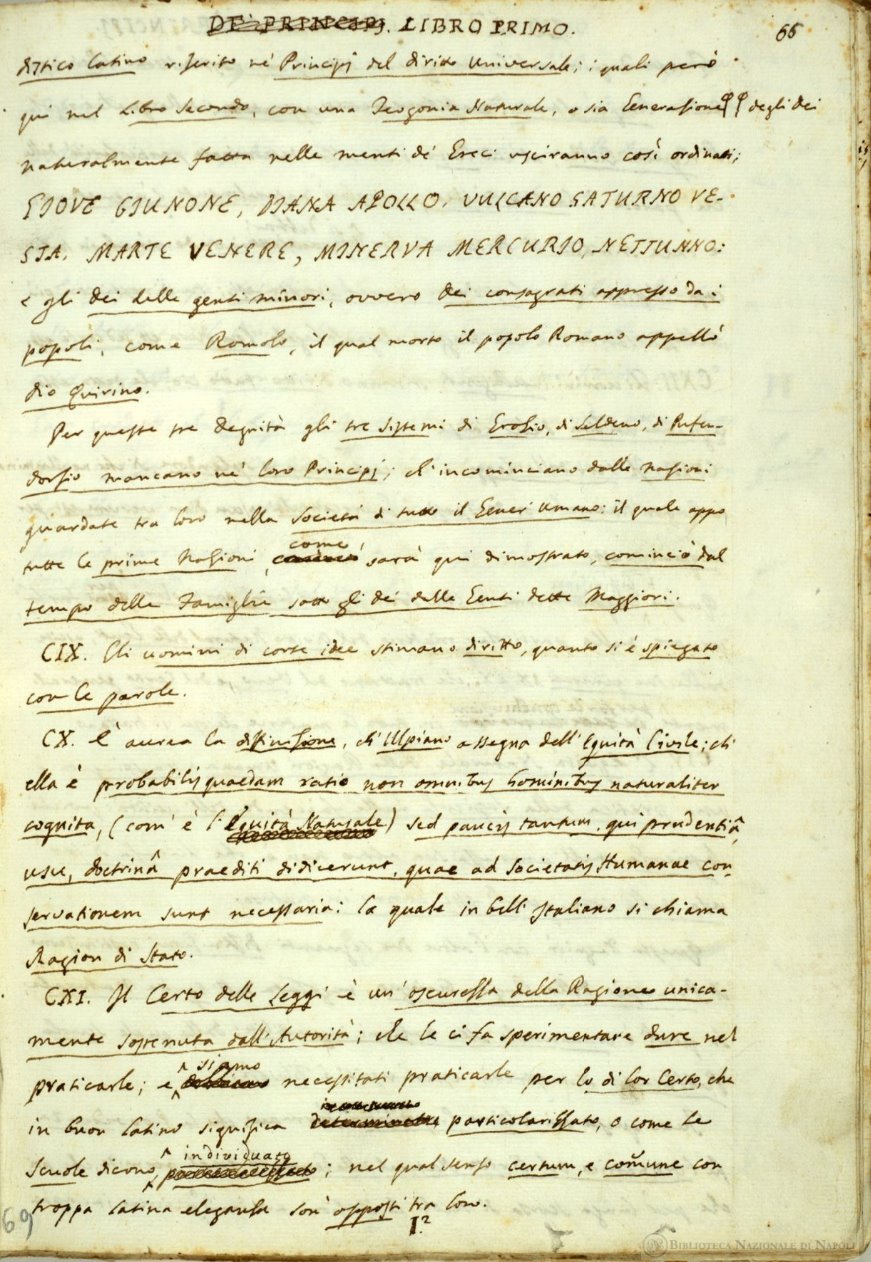 DE' PRINCIPJ. LIBRO PRIMO.
66
distico latino riferito ne' Principj del diritto universale; i quali però
qui nel Libro Secondo, con una Teogonia Naturale, o sia Generazione degli dei
naturalmente fatta nelle menti de' Greci usciranno così ordinati;
GIOVE GIUNONE, DIANA APOLLO, VULCANO SATURNO VE-
STA, MARTE VENERE, MINERVA MERCURIO, NETTUNNO:
e gli dei delle genti minori, ovvero dei consagrati appresso da i
popoli, come Romolo, il qual morto il popolo Romano appellò
dio Quirino.
Per queste tre degnità gli tre sistemi di Grozio, di Seldeno, di Pufen-
dorfio mancano ne' loro Principj; ch' incominciano dalle nazioni
guardate tra loro nella Società di tutto il Gener Umano: il quale appo
tutte le prime Nazioni, come sarà qui dimostrato, cominciò dal
tempo delle Famiglie sotto gli dei delle Genti dette Maggiori.
CIX. Gli uomini di corte idee stimano diritto, quanto si è spiegato
con le parole.
CX. È aurea la diffinizione, ch' Ulpiano assegna dell' Equità Civile; ch'
ella è probabilis quaedam ratio non omnibus hominibus naturaliter
cognita, (com' è l' Equità Naturale) sed paucis tantum, qui prudentiâ,
usu, doctrinâ praediti didicerunt, quae ad Societatis Humanae con-
servationem sunt necessaria: la quale in bell' Italiano si chiama
Ragion di Stato.
CXI. Il Certo delle Leggi è un' oscurezza della Ragione unica-
mente sostenuta dall' Autorità; che le ci fa sperimentare dure nel
praticarle; e siamo necessitati praticarle per lo di lor Certo, che
in buon latino significa particolarizzato, o come le
Scuole dicono, individuato; nel qual senso certum, e comune con
troppa latina eleganza son' opposti tra loro.
I.2
69
BIBLIOTECA NAZIONALE DI NAPOLI